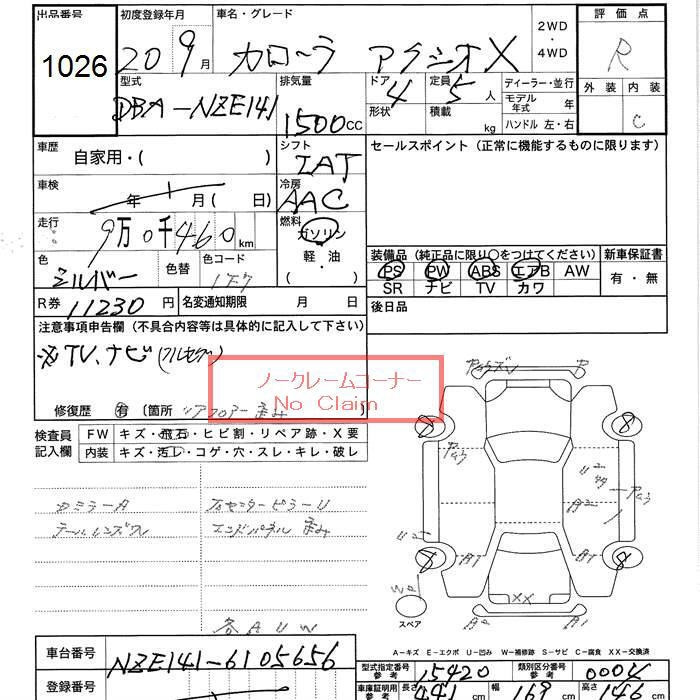 出品番号 初度登録年月 車名・グレード 2WD・4WD 評価点
1026 20 9月 カローラ アクシオ X R
型式 排気量 ドア形状 定員 人 ディーラー・並行 外装 内装
DBA-NZE141 1500cc 4 5 積載 kg モデル年式 年 C
ハンドル 左・右
車歴 自家用・( ) シフト IAT セールスポイント (正常に機能するものに限ります)
車検 年 月( 日) 冷房 AAC
走行 9万0千460km 燃料 ガソリン
軽・油
( )
色 シルバー 色替 色コード 1F7
装備品 (純正品に限り○をつけてください) 新車保証書
PS PW ABS エアB AW 有・無
SR ナビ TV カワ
R券 11230円 名変通知期限 月 日 後日品
注意事項申告欄 (不具合内容等は具体的に記入して下さい)
※TV、ナビ(フルセグ)
ノークレームコーナー
No Claim
修復歴 有 (箇所 リアフロアー歪み )
検査員記入欄 FW キズ・飛石・ヒビ割・リペア跡・X要
内装 キズ・汚レ・コゲ・穴・スレ・キレ・破レ
テールレンズワレ エンドパネル 歪み
各AUW
スペア
A-キズ E-エクボ U-凹み W-補修跡 S-サビ C-腐食 XX-交換済
車台番号 NZE141-6105656
型式指定番号 参考 15420 類別区分番号 参考
登録番号
車庫証明用 参考 長さ 441cm 幅 169cm 高さ 146cm